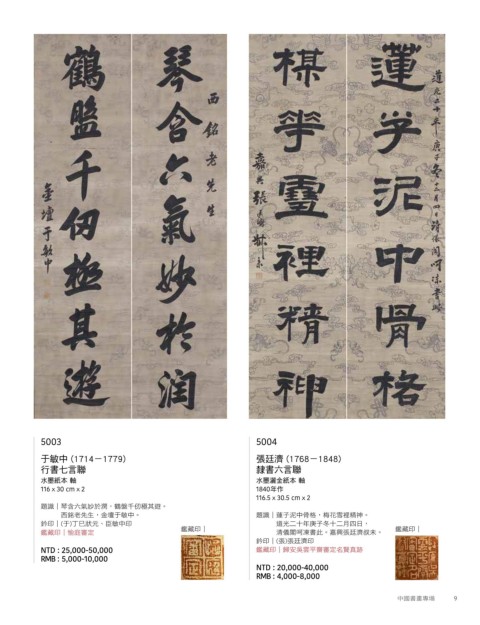 西銘老先生
琴含六氣妙於潤
鶴盤千仞極其遊
金壇于敏中
道光二十年庚子冬十二月四日清儀閣呵凍書此
蓮子泥中骨格
楳華雪裡精神
嘉興張廷濟叔未
5003
于敏中 (1714－1779)
行書七言聯
水墨紙本 軸
116 x 30 cm x 2
題識｜琴含六氣妙於潤，鶴盤千仞極其遊。
西銘老先生，金壇于敏中。
鈐印｜(于)丁巳狀元、臣敏中印
鑑藏印｜怡庭審定
NTD : 25,000-50,000
RMB : 5,000-10,000
鑑藏印｜
5004
張廷濟 (1768－1848)
隸書六言聯
水墨灑金紙本 軸
1840年作
116.5 x 30.5 cm x 2
題識｜蓮子泥中骨格，梅花雪裡精神。
道光二十年庚子冬十二月四日，
清儀閣呵凍書此。嘉興張廷濟叔未。
鈐印｜(張)張廷濟印
鑑藏印｜歸安吳雲平齋審定名賢真跡
NTD : 20,000-40,000
RMB : 4,000-8,000
鑑藏印｜
中國書畫專場
9